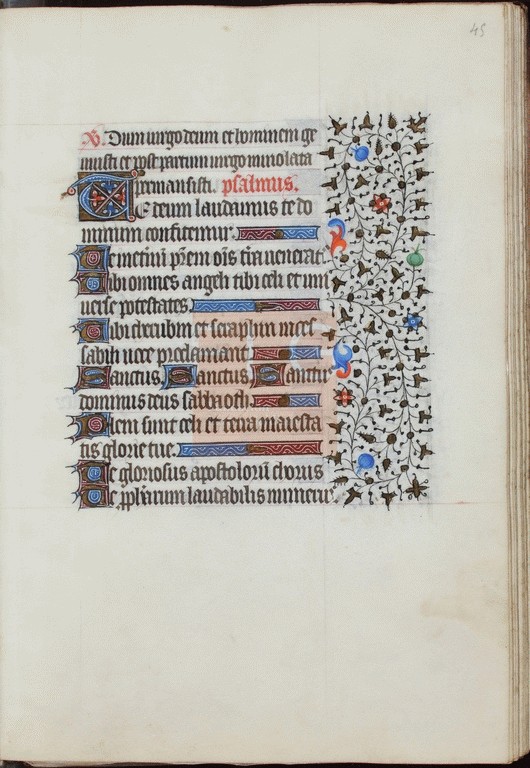 45
V. Dum virgo deum et hominem ge
nuisti et post partum virgo inviolata
permansisti. psalmus.
Te deum laudamus te do
minum confitemur.
Te eternū p̄rem oīs t̄ra venerat̄.
Tibi omnes angeli tibi celi et uni
verse potestates
Tibi cherubin et seraphin inces
sabili voce proclamant
Sanctus. Sanctus. Sanctus
dominus deus sabbaoth.
Pleni sunt celi et terra maiesta
tis glorie tue.
Te gloriosus apostolorū chorus
Te ꝓph̄arum laudabilis numerus